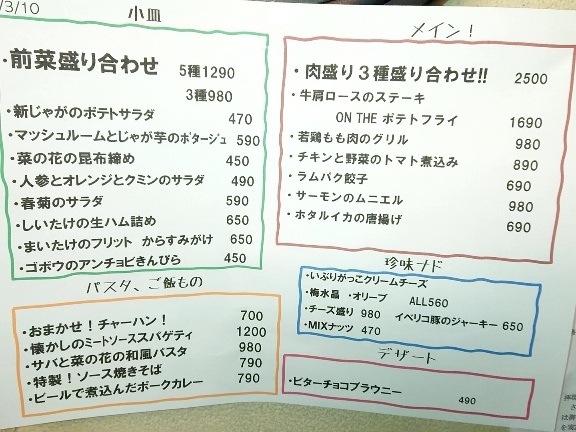 /3/10
小皿
・前菜盛り合わせ 5種1290
3種980
・新じゃがのポテトサラダ 470
・マッシュルームとじゃが芋のポタージュ 590
・菜の花の昆布締め 450
・人参とオレンジとクミンのサラダ 490
・春菊のサラダ 590
・しいたけの生ハム詰め 650
・まいたけのフリット からすみがけ 650
・ゴボウのアンチョビきんぴら 450
パスタ、ご飯もの
・おまかせ！チャーハン！ 700
・懐かしのミートソーススパゲティ 1200
・サバと菜の花の和風パスタ 980
・特製！ソース焼きそば 790
・ビールで煮込んだポークカレー 790
メイン！
・肉盛り３種盛り合わせ!! 2500
・牛肩ロースのステーキ
ON THE ポテトフライ 1690
・若鶏もも肉のグリル 980
・チキンと野菜のトマト煮込み 890
・ラムパク餃子 690
・サーモンのムニエル 980
・ホタルイカの唐揚げ 690
珍味ナド
・いぶりがっこクリームチーズ
・梅水晶 ・オリーブ ALL560
・チーズ盛り 980 イベリコ豚のジャーキー 650
・MIXナッツ 470
デザート
・ビターチョコブラウニー 490